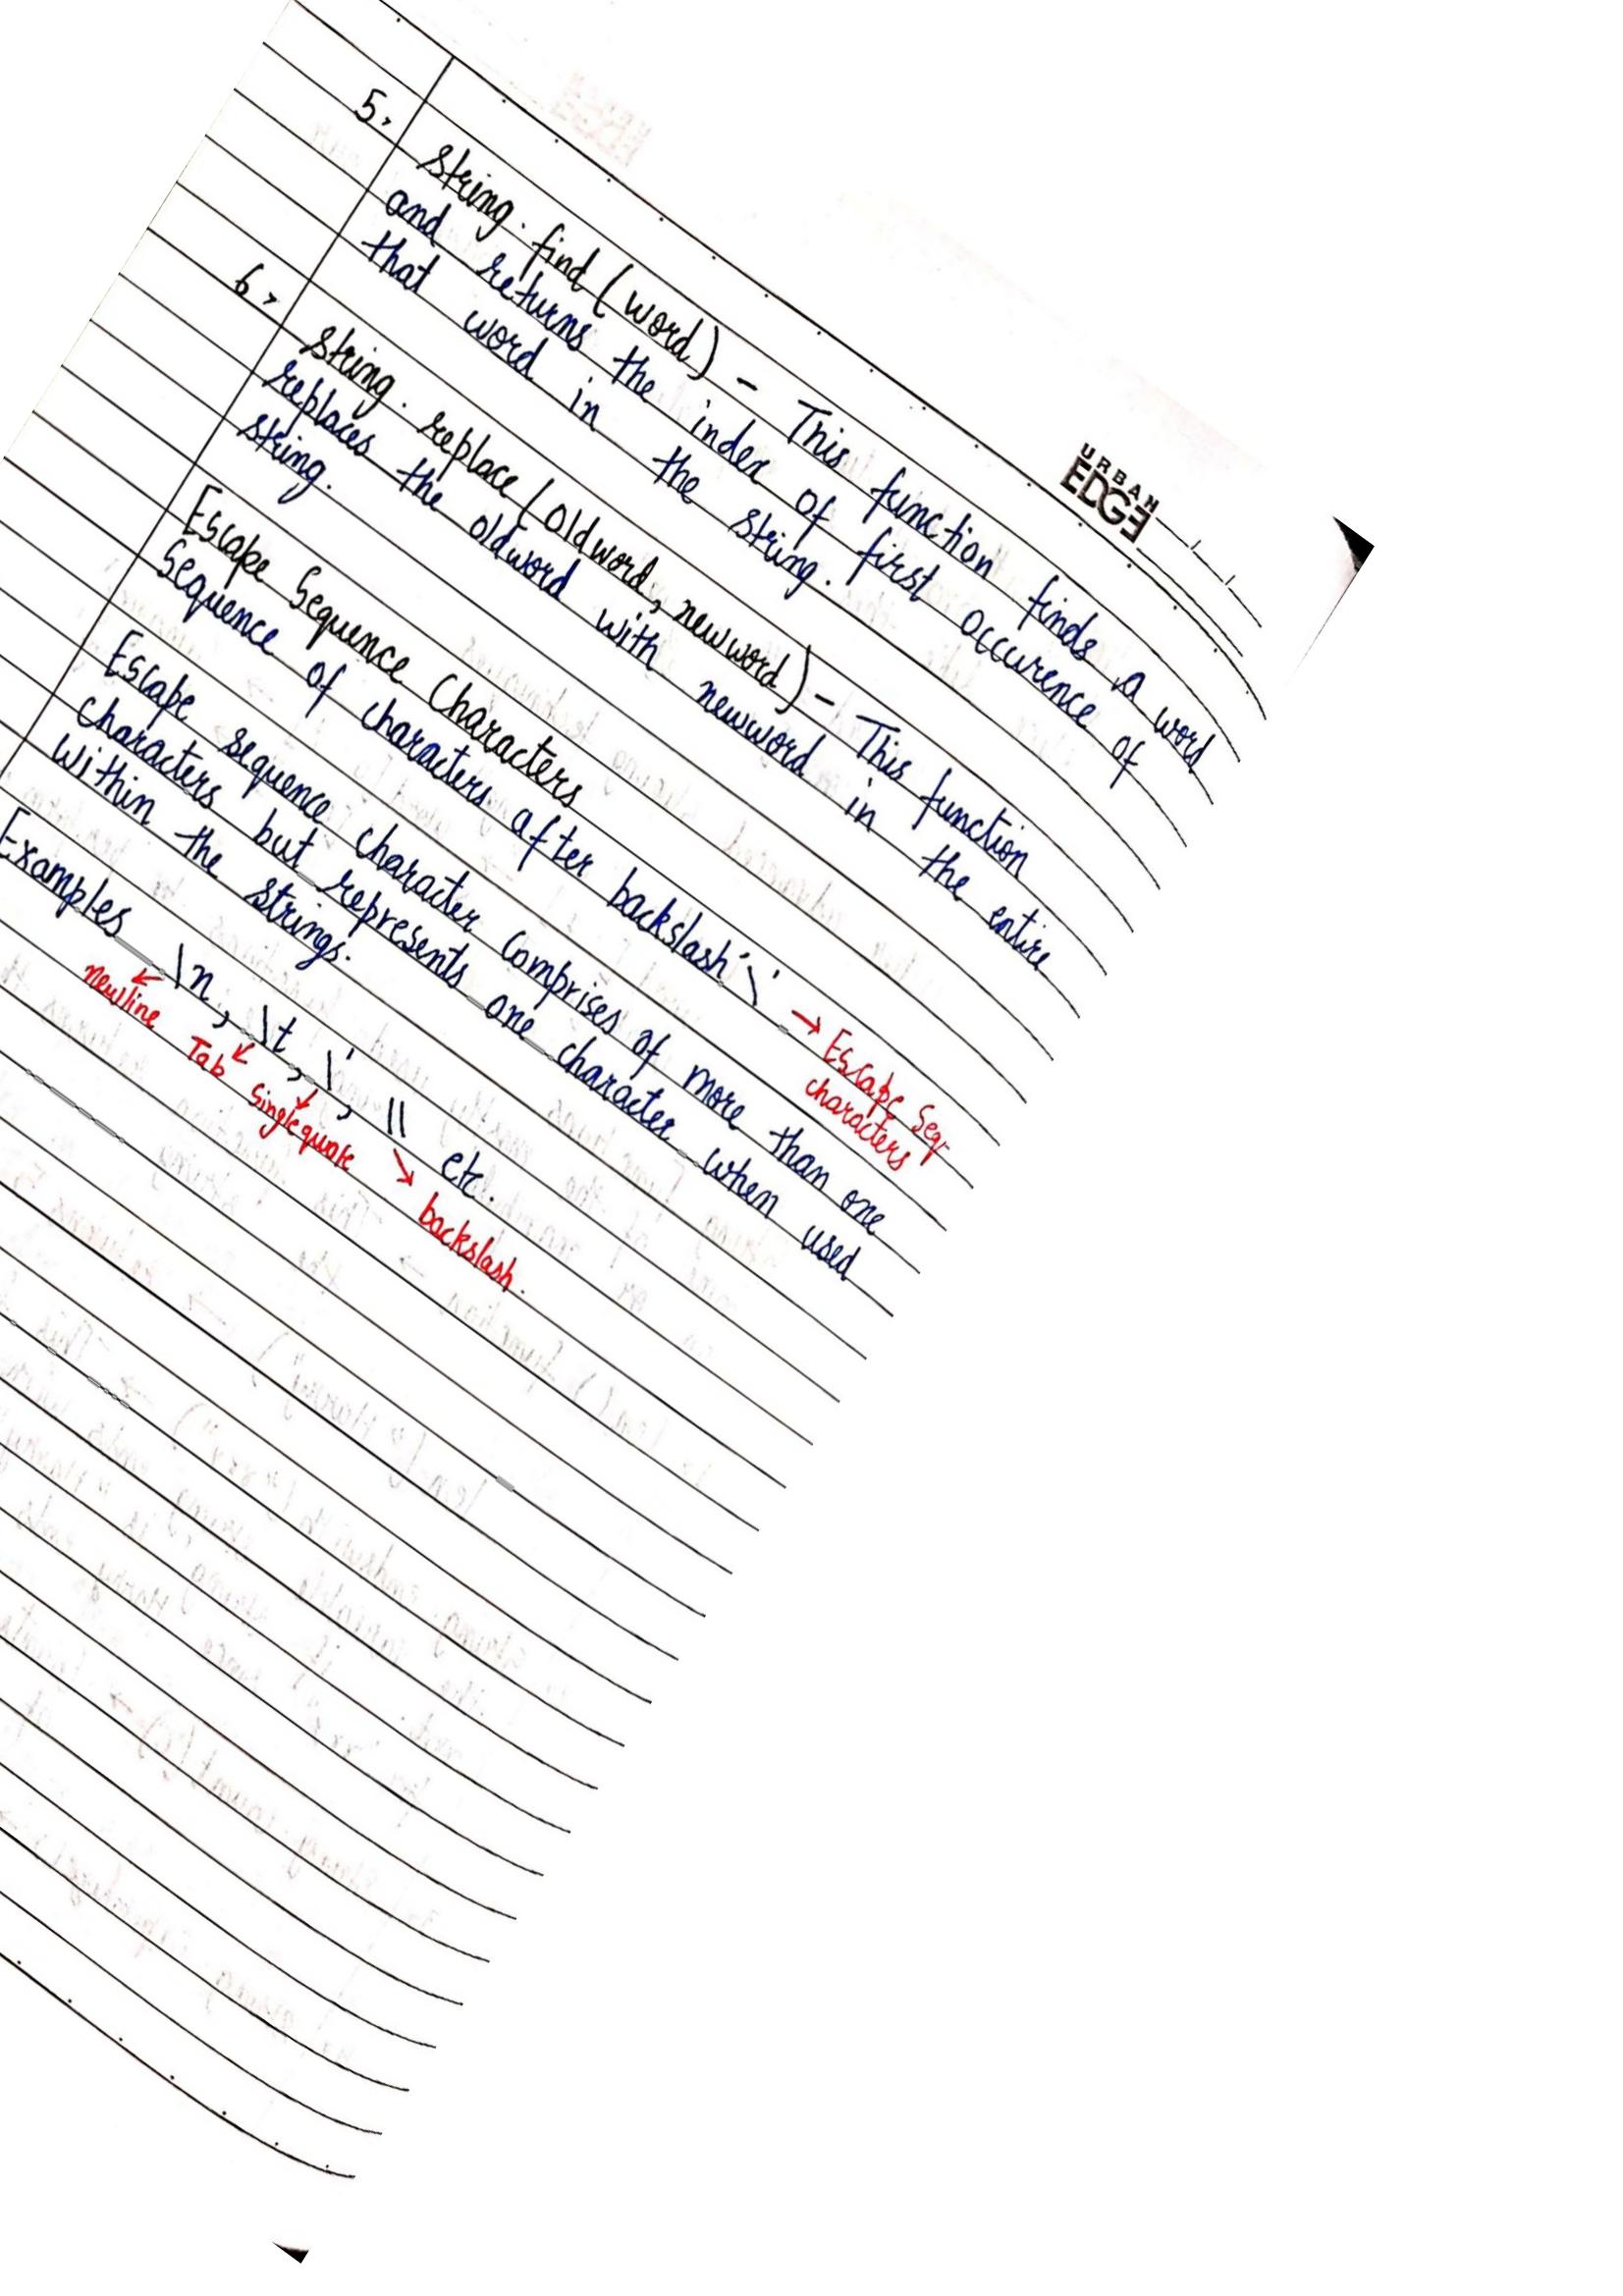 URBAN
EDGE
5> string. find (word) - This function finds a word
and returns the index of first occurence of
that word in the string.
6> string. replace (oldword, newword) - This function
replaces the oldword with newword in the entire
string.
Escape Sequence Characters
Sequence of characters after backslash '\' → Escape Seq.
characters
Escape sequence character comprises of more than one
characters but represents one character when used
within the strings.
Examples \n, \t, \', \\ etc.
newline Tab Singlequote backslash.